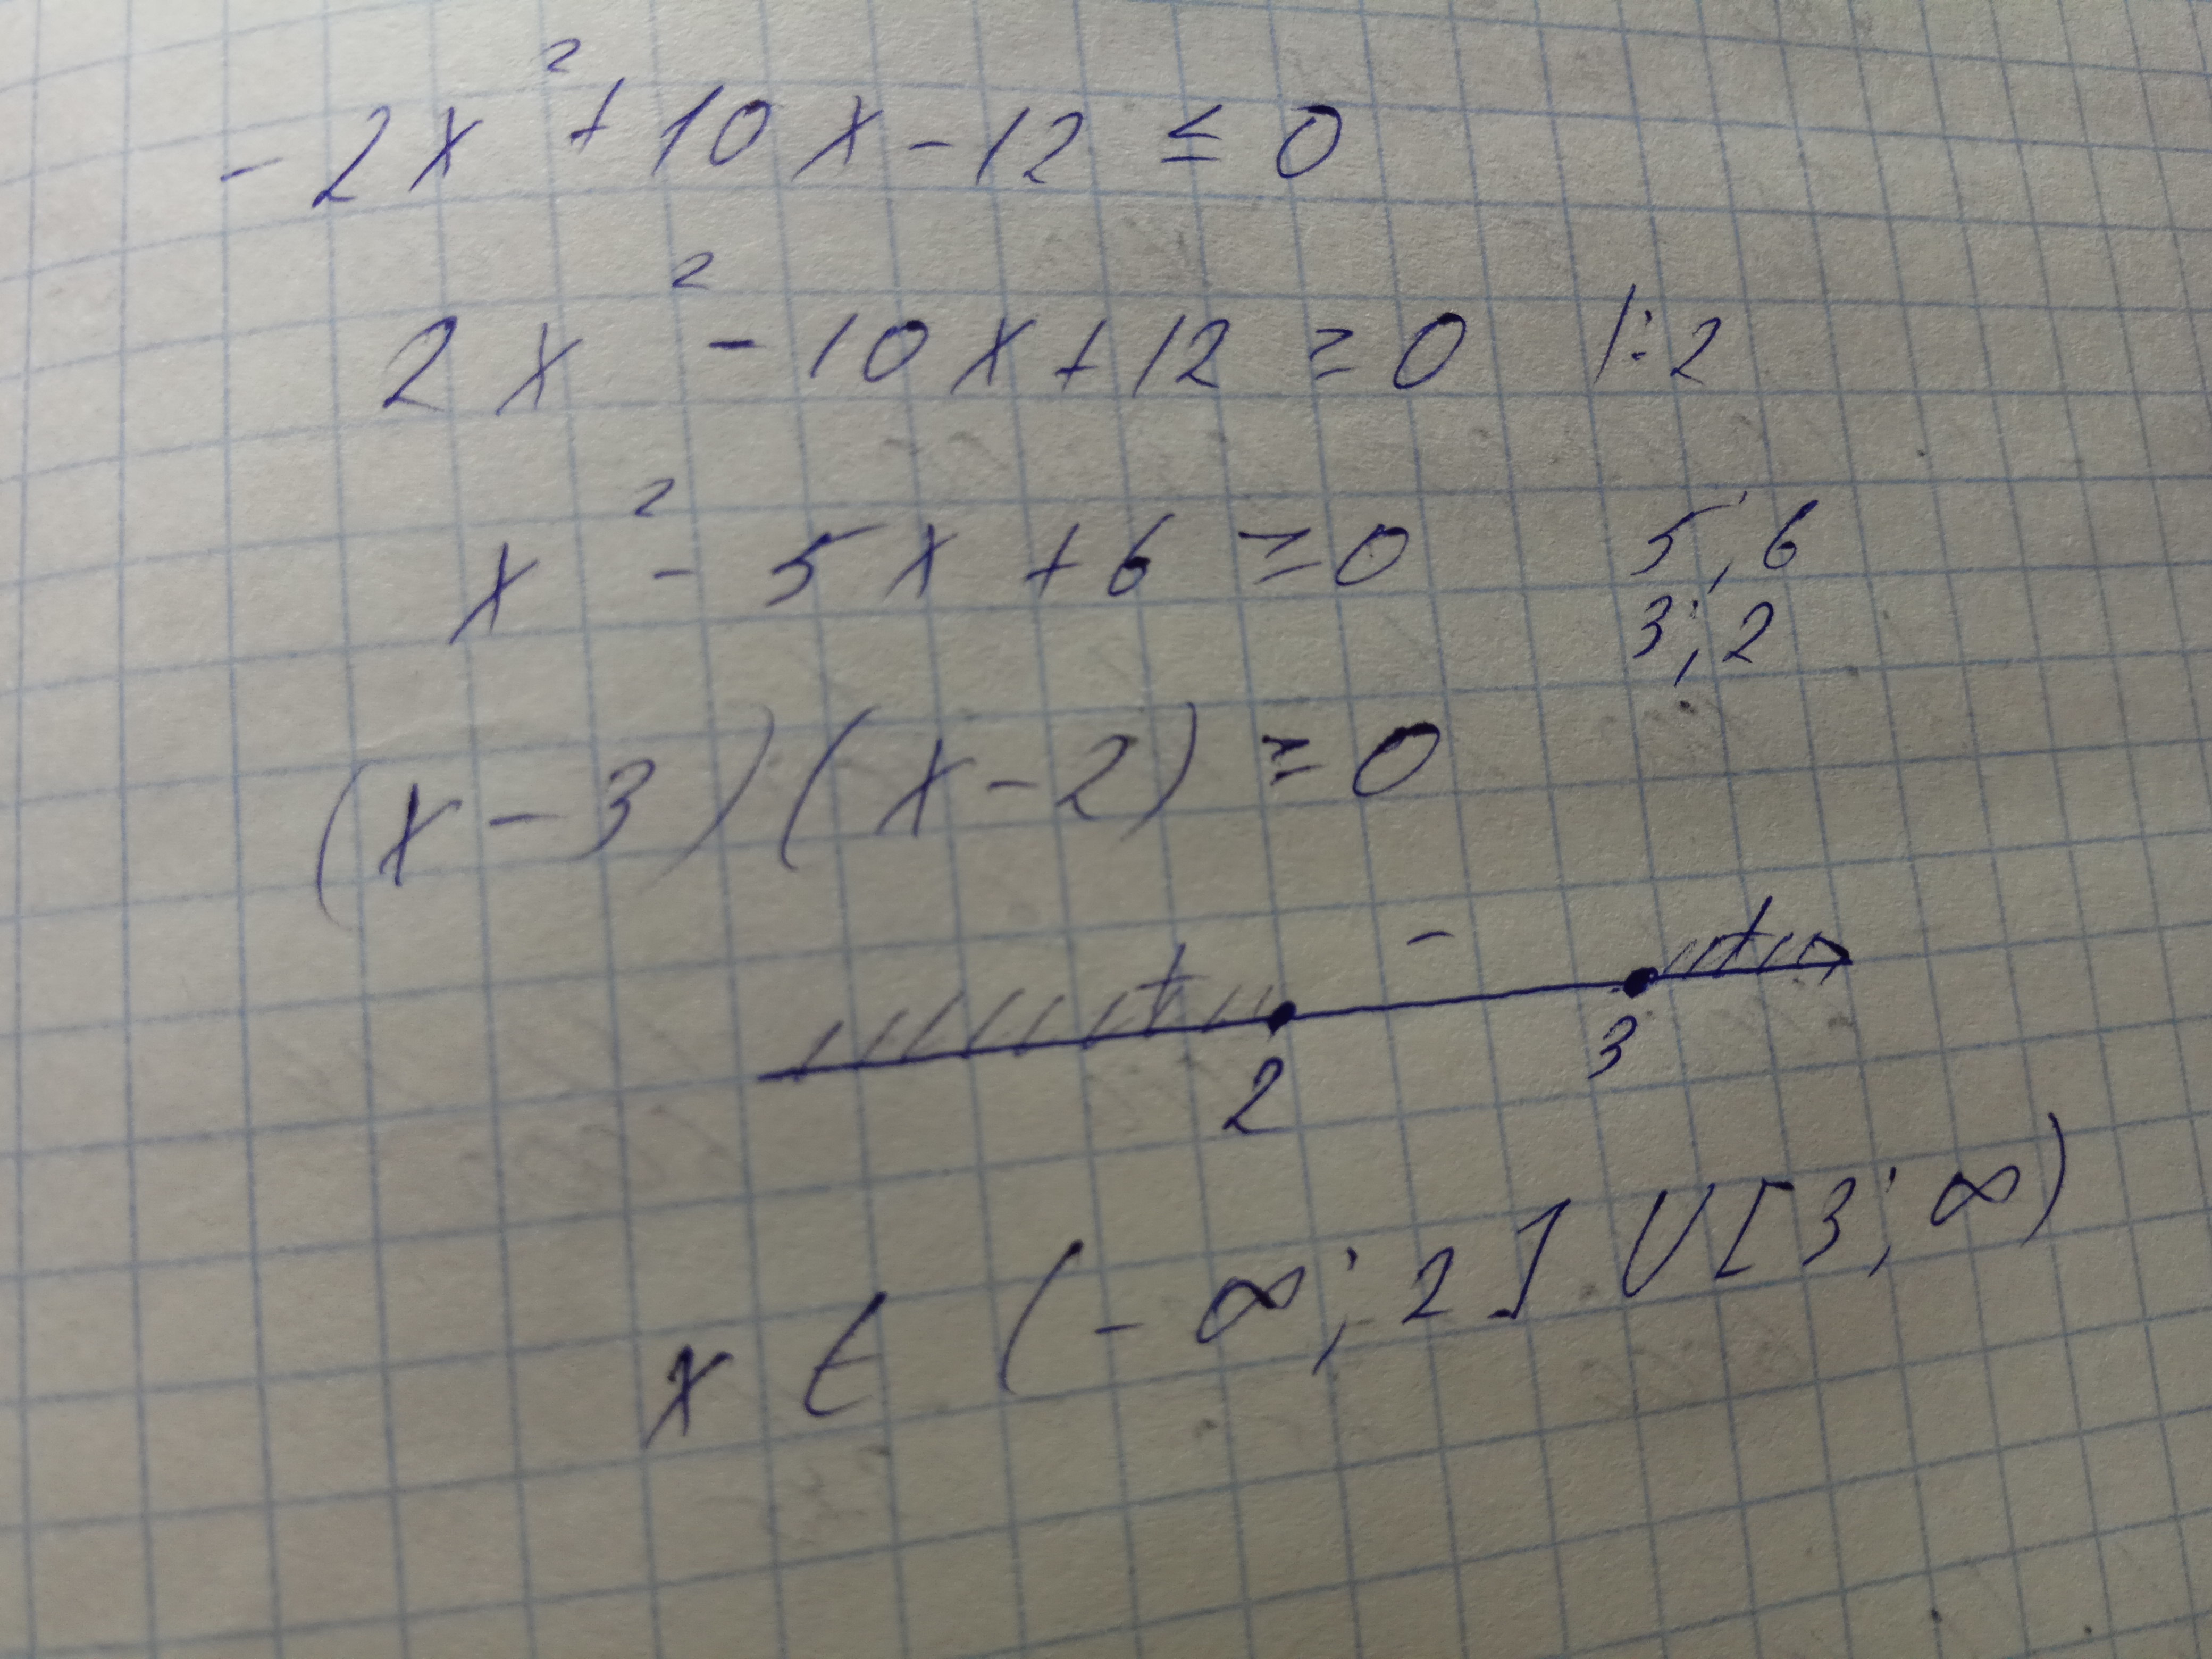 -2x² + 10x - 12 ≤ 0
2x² - 10x + 12 ≥ 0 |:2
x² - 5x + 6 ≥ 0 5; 6
3; 2
(x - 3)(x - 2) ≥ 0
+ - +
2 3
x ∈ (-∞; 2] ∪ [3; ∞)